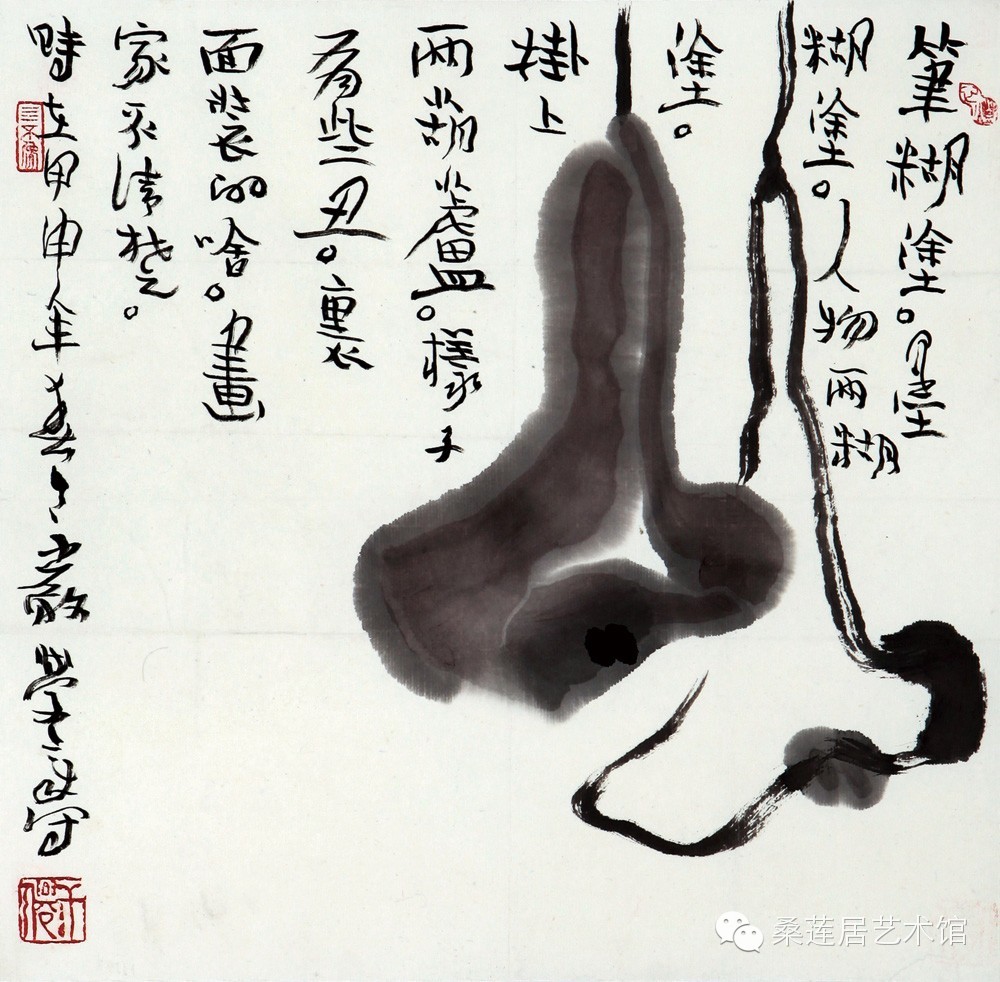 筆糊塗。墨
糊塗。人物兩糊
塗。
掛上
兩葫蘆。樣子
有些丑。裏
面裝的啥。畫
家不清楚。
時在甲申年春
桑莲居艺术馆